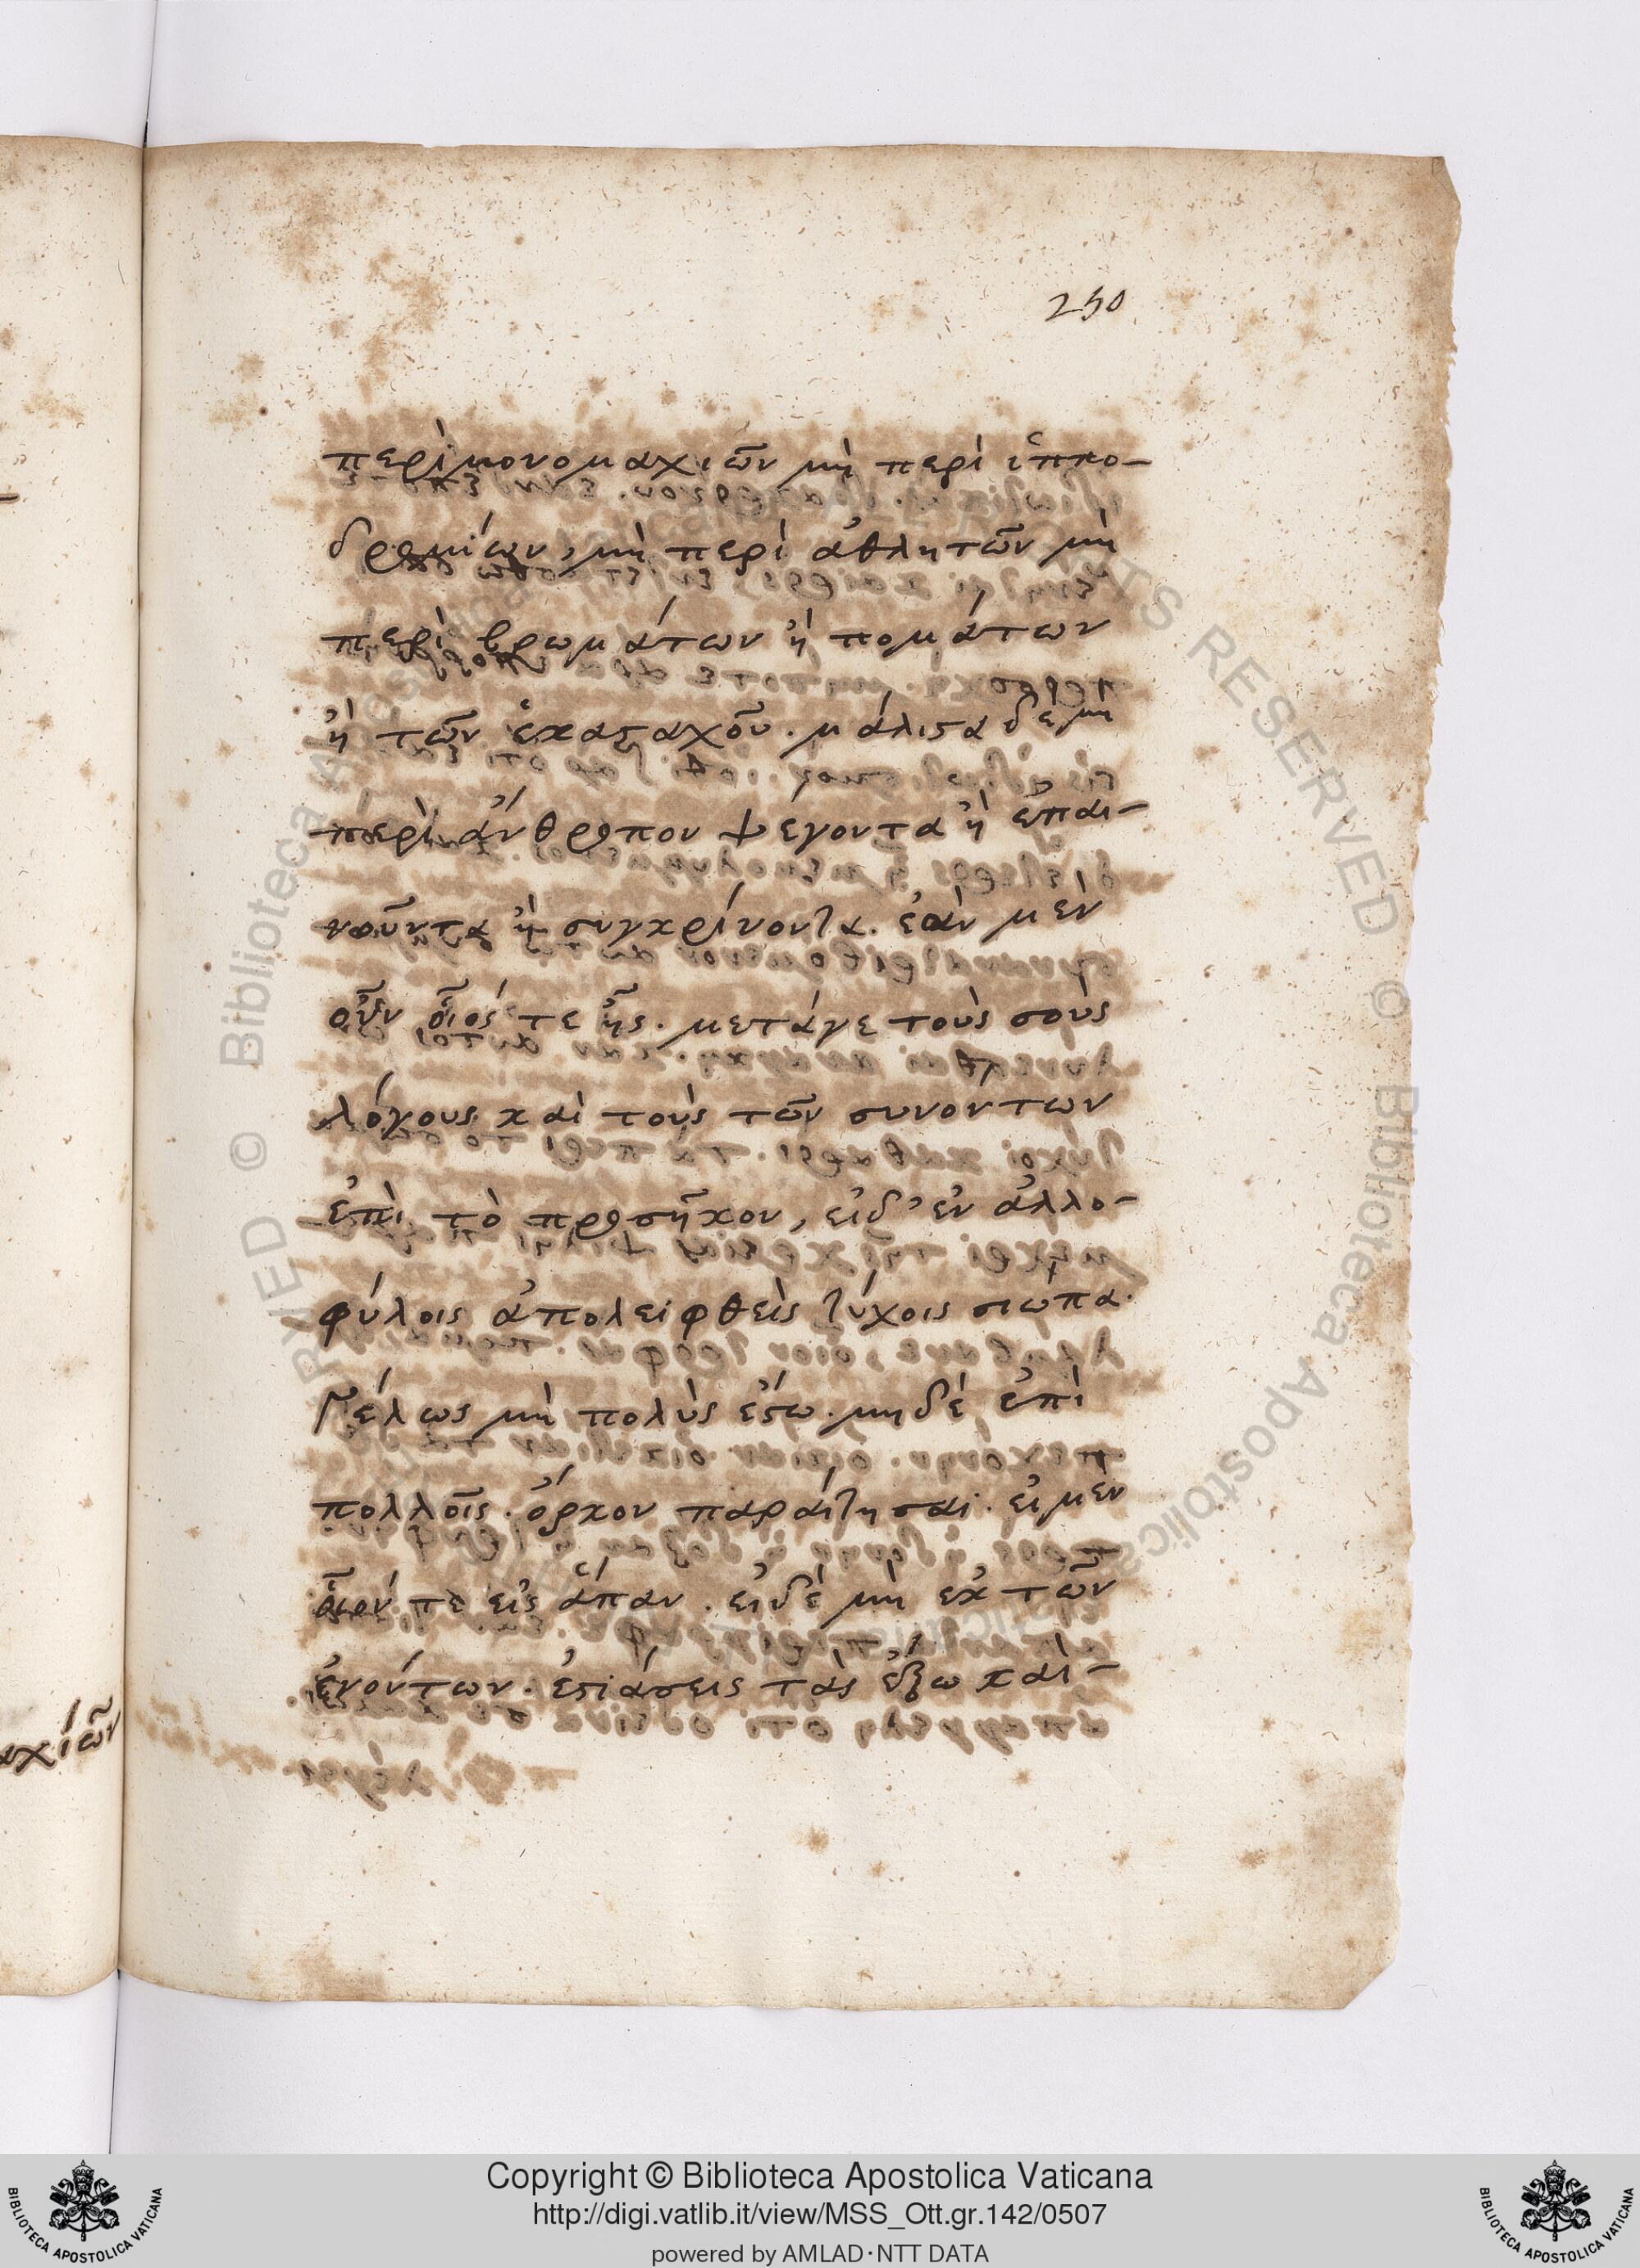 250
περὶ μονομαχιῶν μὴ περὶ ἱππο-
δρομίων, μὴ περὶ ἀθλητῶν μὴ
περὶ βρωμάτων ἢ πομάτων
ἢ τῶν ἑκασταχοῦ. μάλιστα δὲ μὴ
περὶ ἄνθρωπον ψέγοντα ἢ ἐπαι-
νοῦντα ἢ συγκρίνοντα. ἐὰν μὲν
οὖν οἷός τε ᾖς. μετάγε τοὺς σοὺς
λόγους καὶ τοὺς τῶν συνόντων
ἐπὶ τὸ προσῆκον, εἰδ' ἐν ἀλλο-
φύλοις ἀπολειφθεὶς τύχοις σιώπα.
Γέλως μὴ πολὺς ἔστω. μηδὲ ἐπὶ
πολλοῖς. ὅρκον παραίτησαι. εἰ μὲν
οἷόν τε εἰς ἅπαν. εἰδὲ μὴ ἐκ τῶν
ἐνόντων. ἑστιάσεις τὰς ἔξω καὶ-
αχιῶν
Copyright © Biblioteca Apostolica Vaticana
http://digi.vatlib.it/view/MSS_Ott.gr.142/0507
powered by AMLAD·NTT DATA
BIBLIOTECA APOSTOLICA VATICANA
BIBLIOTECA APOSTOLICA VATICANA